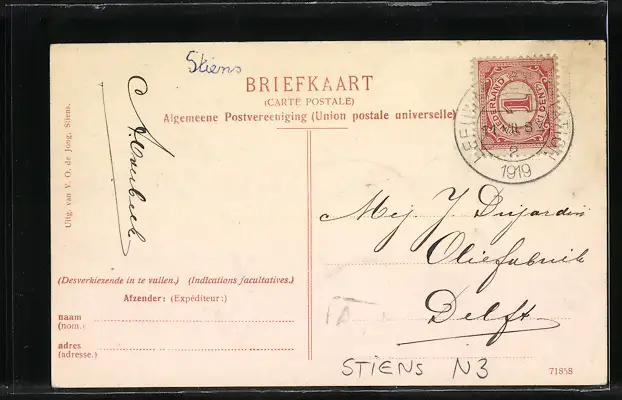 Stiens
BRIEFKAART
(CARTE POSTALE)
Algemeene Postvereeniging (Union postale universelle)
Uitg. van V. O. de Jong, Stiens.
NEDERLAND
1
CENT
1919
Mej J Dujardin
Oliefabriek
Delft
(Desverkiezende in te vullen.) (Indications facultatives.)
Afzender: (Expéditeur:)
naam
(nom.)
adres
(adresse.)
STIENS N3
71858